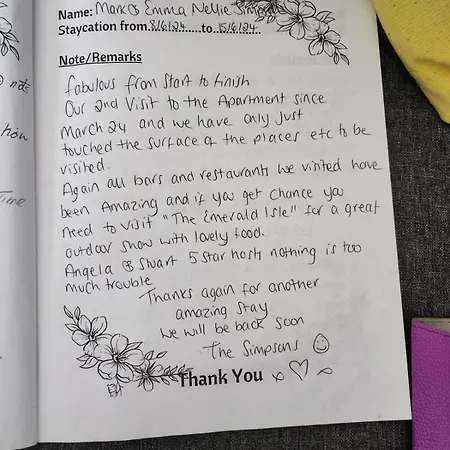 Name: Mark & Emma Nellie Simpson
Staycation from 8/6/24 to 15/6/24
Note/Remarks
Fabulous from Start to Finish
Our 2nd Visit to the Apartment since
March 24 and we have only just
touched the surface of the places etc to be
visited.
Again all bars and restaurants we visited have
been Amazing and if you get chance you
need to visit "The Emerald Isle" for a great
outdoor show with lovely food.
Angela & Stuart 5 Star hosts nothing is too
much trouble
Thanks again for another
amazing stay
we will be back soon
The Simpsons
Thank You
note
Time